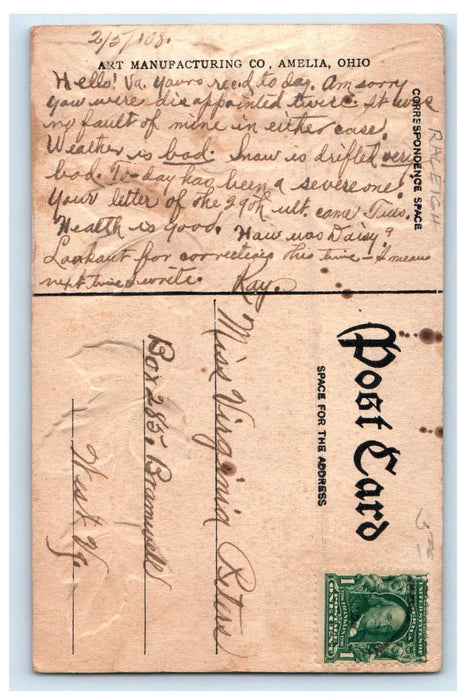 2/5/'08.
ART MANUFACTURING CO, AMELIA, OHIO
Hello! Va. Yours rec'd to-day. Am sorry
you were disappointed twice. It was
no fault of mine in either case.
Weather is bad. Snow is drifted very
bad. To-day has been a severe one.
Your letter of the 29th ult. came Tues.
Health is good. How was Daisy?
Lookout for correction this time - I mean
next time I write. Ray.
CORRESPONDENCE SPACE
RALEIGH
Post Card
SPACE FOR THE ADDRESS
Miss Virginia
Box 285, Bramwell
West Va.
1 ONE CENT 1